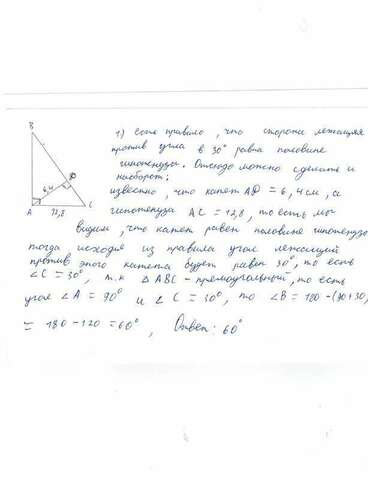 B
D
6,4
A 12,8 C
1) есть правило, что сторона лежащая
против угла в 30° равна половине
гипотенузы. Отсюда можно сделать и
наоборот:
известно, что катет AD = 6,4 см, а
гипотенуза AC = 12,8, то есть мы
видим, что катет равен половине гипотенузы
тогда исходя из правила угол лежащий
против этого катета будет равен 30°, то есть
∠C = 30°, т.к △ABC - прямоугольный, то есть
угол ∠A = 90° и ∠C = 30°, то ∠B = 180 - (90+30)
= 180 - 120 = 60°, Ответ: 60°